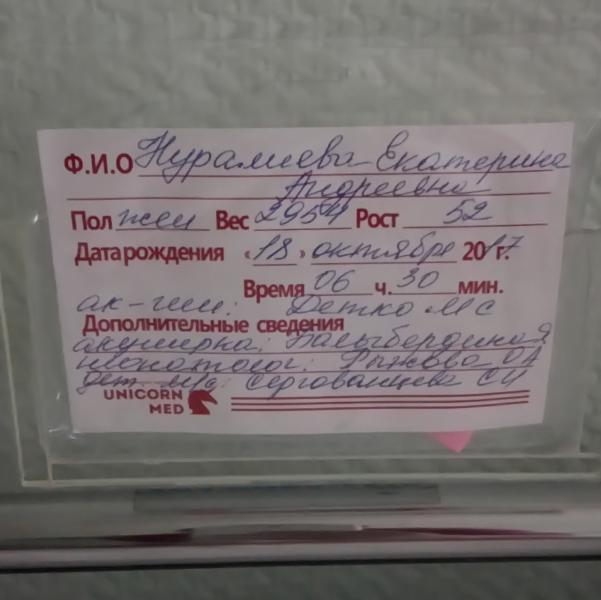 Ф.И.О Нуралиева Екатерина
Андреевна
Пол жен Вес 2954 Рост 52
Дата рождения «18» октября 2017 г.
Время 06 ч. 30 мин.
ак-гин: Детко М С
Дополнительные сведения
акушерка:
неонатолог: Рыжова О А
дет. м/с: Сергованцева С И
UNICORN
MED